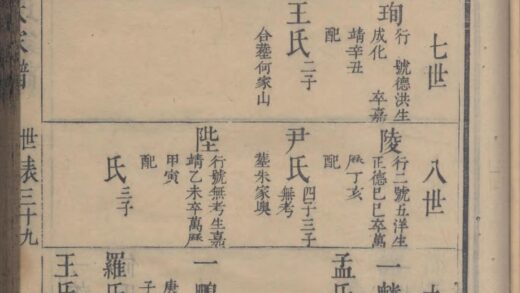 七世
珣
行 號德洪生
成化 卒嘉
靖辛丑
配
王氏
二子
合塟何家山
八世
陵
行二號五洋生
正德己巳卒萬
厯丁亥
配
尹氏
四子三子
無考
塟朱家輿
陛
行號無考生嘉
靖乙未卒萬厯
甲寅
配
氏
三子
一
孟氏
一鵬
庚
子
羅氏
王氏
家譜
世表三十九